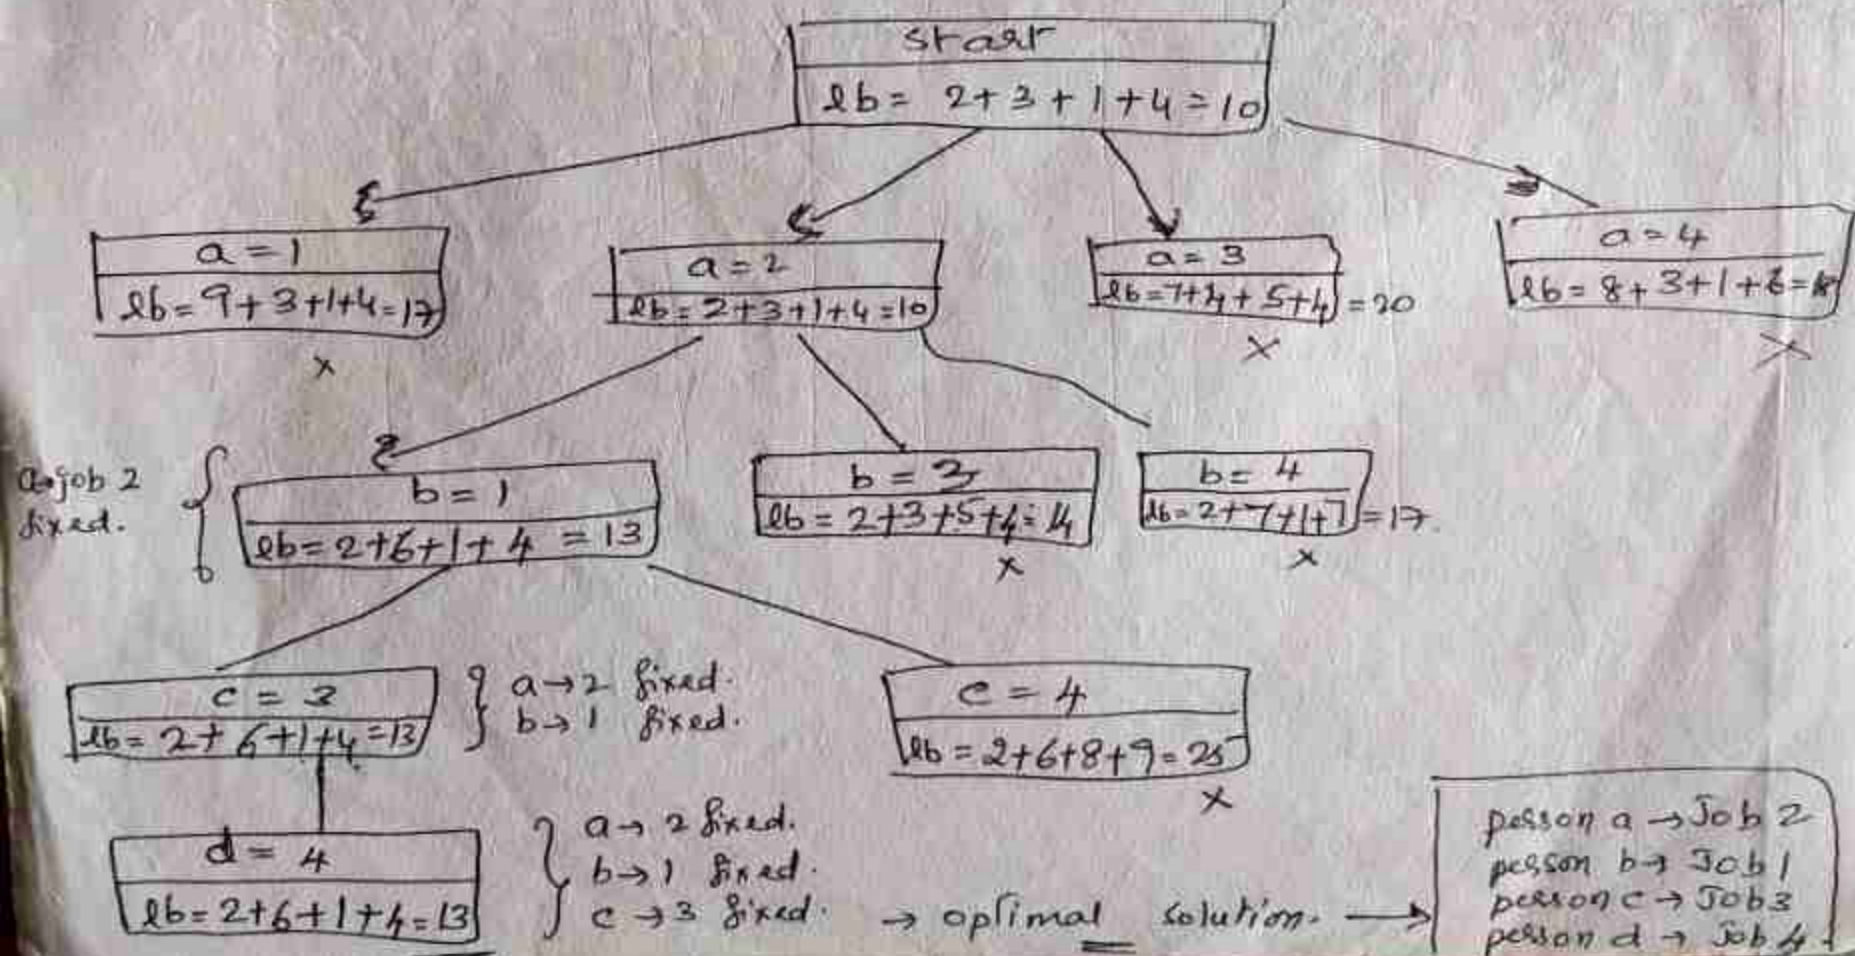 start
lb = 2+3+1+4=10
a=1
lb=9+3+1+4=17
x
a=2
lb=2+3+1+4=10
a=3
lb=7+4+5+4=20
x
a=4
lb=8+3+1+6=18
x
a→job 2
fixed.
b=1
lb=2+6+1+4 =13
b=3
lb=2+3+5+4=14
x
b=4
lb=2+7+1+7=17
x
c=3
lb=2+6+1+4=13
a→2 fixed.
b→1 fixed.
c=4
lb=2+6+8+9=25
x
d=4
lb=2+6+1+4=13
a→2 fixed.
b→1 fixed.
c→3 fixed. → optimal solution. →
person a → Job 2
person b → Job 1
person c → Job 3
person d → Job 4.